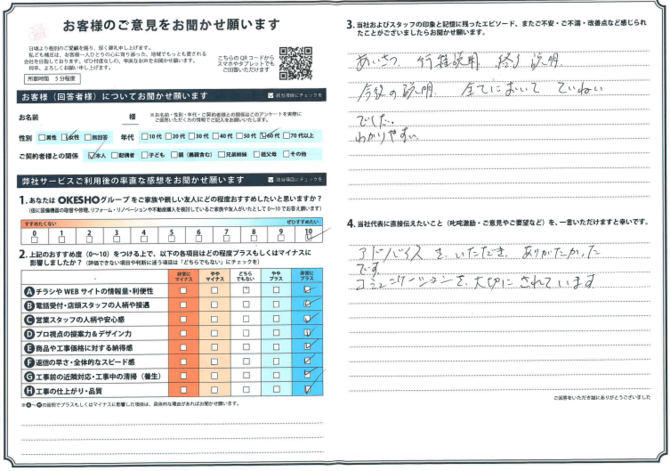 お客様のご意見をお聞かせ願います
日頃より格別のご愛顧を賜り、厚く御礼申し上げます。
こちらのQRコードから
スマホやタブレットでも
ご回答いただけます
所要時間 5分程度
お客様（回答者様）についてお聞かせ願います
該当項目にチェックを
お名前 様
性別 男性 女性 無回答 年代 10代 20代 30代 40代 50代 60代 70代以上
ご契約者様との関係 本人 配偶者 子ども 親（義親含む） 兄弟姉妹 祖父母 その他
弊社サービスご利用後の率直な感想をお聞かせ願います
該当項目にチェックを
1. あなたは OKESHOグループ をご家族や親しい友人にどの程度おすすめしたいと思いますか？
すすめたくない ぜひすすめたい
0 1 2 3 4 5 6 7 8 9 10
2. 上記のおすすめ度（0〜10）をつける上で、以下の各項目はどの程度プラスもしくはマイナスに
影響しましたか？（評価できない項目や判断に迷う項目は「どちらでもない」にチェック）
非常にマイナス ややマイナス どちらでもない ややプラス 非常にプラス
A チラシやWEBサイトの情報量・利便性
B 電話受付・店頭スタッフの人柄や接遇
C 営業スタッフの人柄や安心感
D プロ視点の提案力&デザイン力
E 商品や工事価格に対する納得感
F 返信の早さ・全体的なスピード感
G 工事前の近隣対応・工事中の清掃（養生）
H 工事の仕上がり・品質
3. 当社およびスタッフの印象と記憶に残ったエピソード、またご不安・ご不満・改善点など感じられ
たことがございましたらお聞かせ願います。
あいさつ 行程説明 終了説明
今後の説明 全てにおいて ていねい
でした。
わかりやすい
4. 当社代表に直接伝えたいこと（叱咤激励・ご意見やご要望など）を、一言いただけますと幸いです。
アドバイスを いただき ありがたかった
です
コミュニケーションを 大切に されています
ご回答をいただき誠にありがとうございました